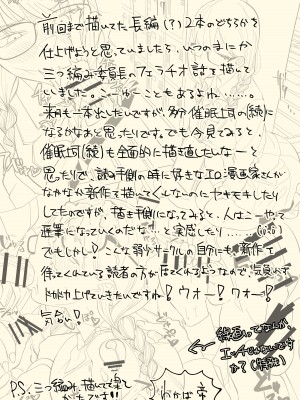 前回まで描いてた長編(?)2本のどちらかを
仕上げようと思っていましたら、いつのまにか
三つ編み委員長のフェラチオ話を描いて
いました。こーゆーこともあるよね……。
来月も一本出したいですが、多分催眠上司の(続)に
なるかなあと思ったりです。でも今見てみると、
催眠上司(続)も全面的に描き直したいなーと
思ったりで、読み手側の時に好きなエロ漫画家さんが
なかなか新作を描いてくんないのにヤキモキしたり
してたのですが、描き手側になってみると、人はこーやって
寡筆になっていくのだな…と実感したり………
でもしかし!こんな弱小サークルの自分にも、新作を
待ってくれている読者の方が居てくれるようなので、気負わず
ドカドカ上げていきたいですね!ウオー!ウオー!
気合い!
線画ってなんか、
エッチじゃないです
か?(性癖)
P.S. 三つ編み、描いてて楽し
かったです!!
わかば帝